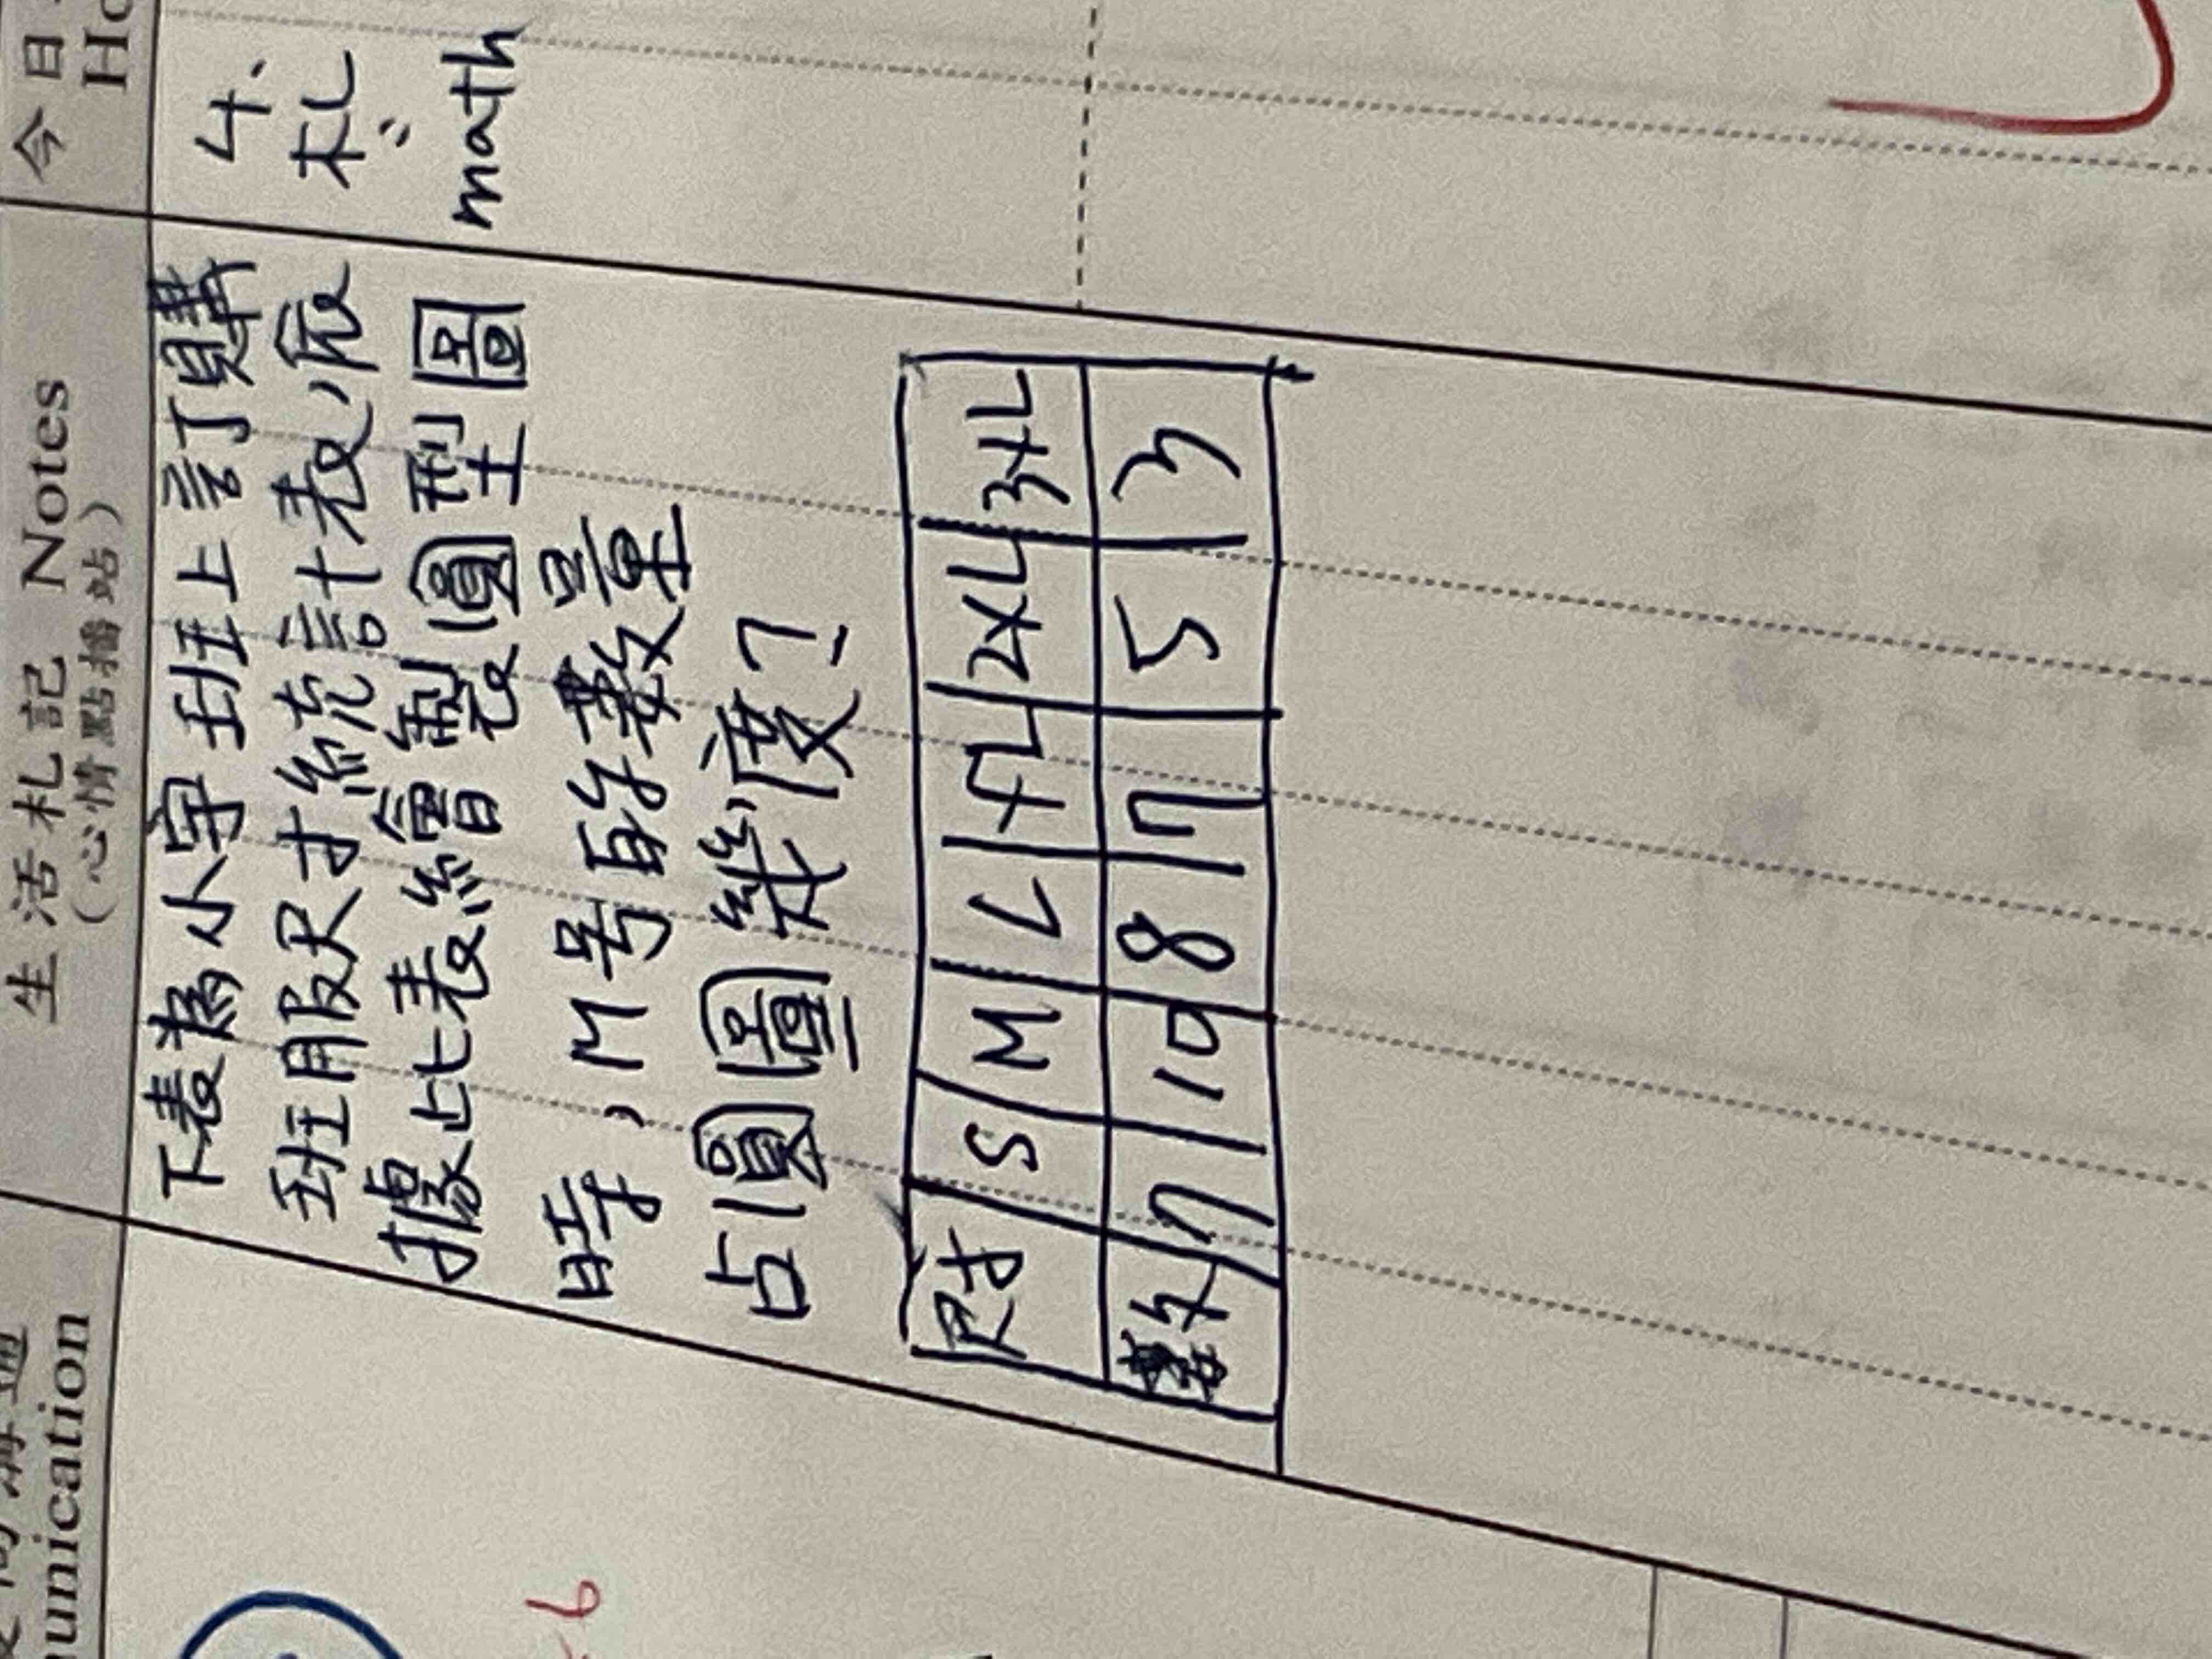 今日
Ho
4.
札
math
生活札記 Notes
(心情點播站)
下表為小宇班上訂購
班服尺寸統計表,依
據此表繪製圓型圖
時,M号的数量
占圓圖幾度?
尺寸 S M L XL 2XL 3XL
數女 7 10 8 7 5 3
通
unication
6